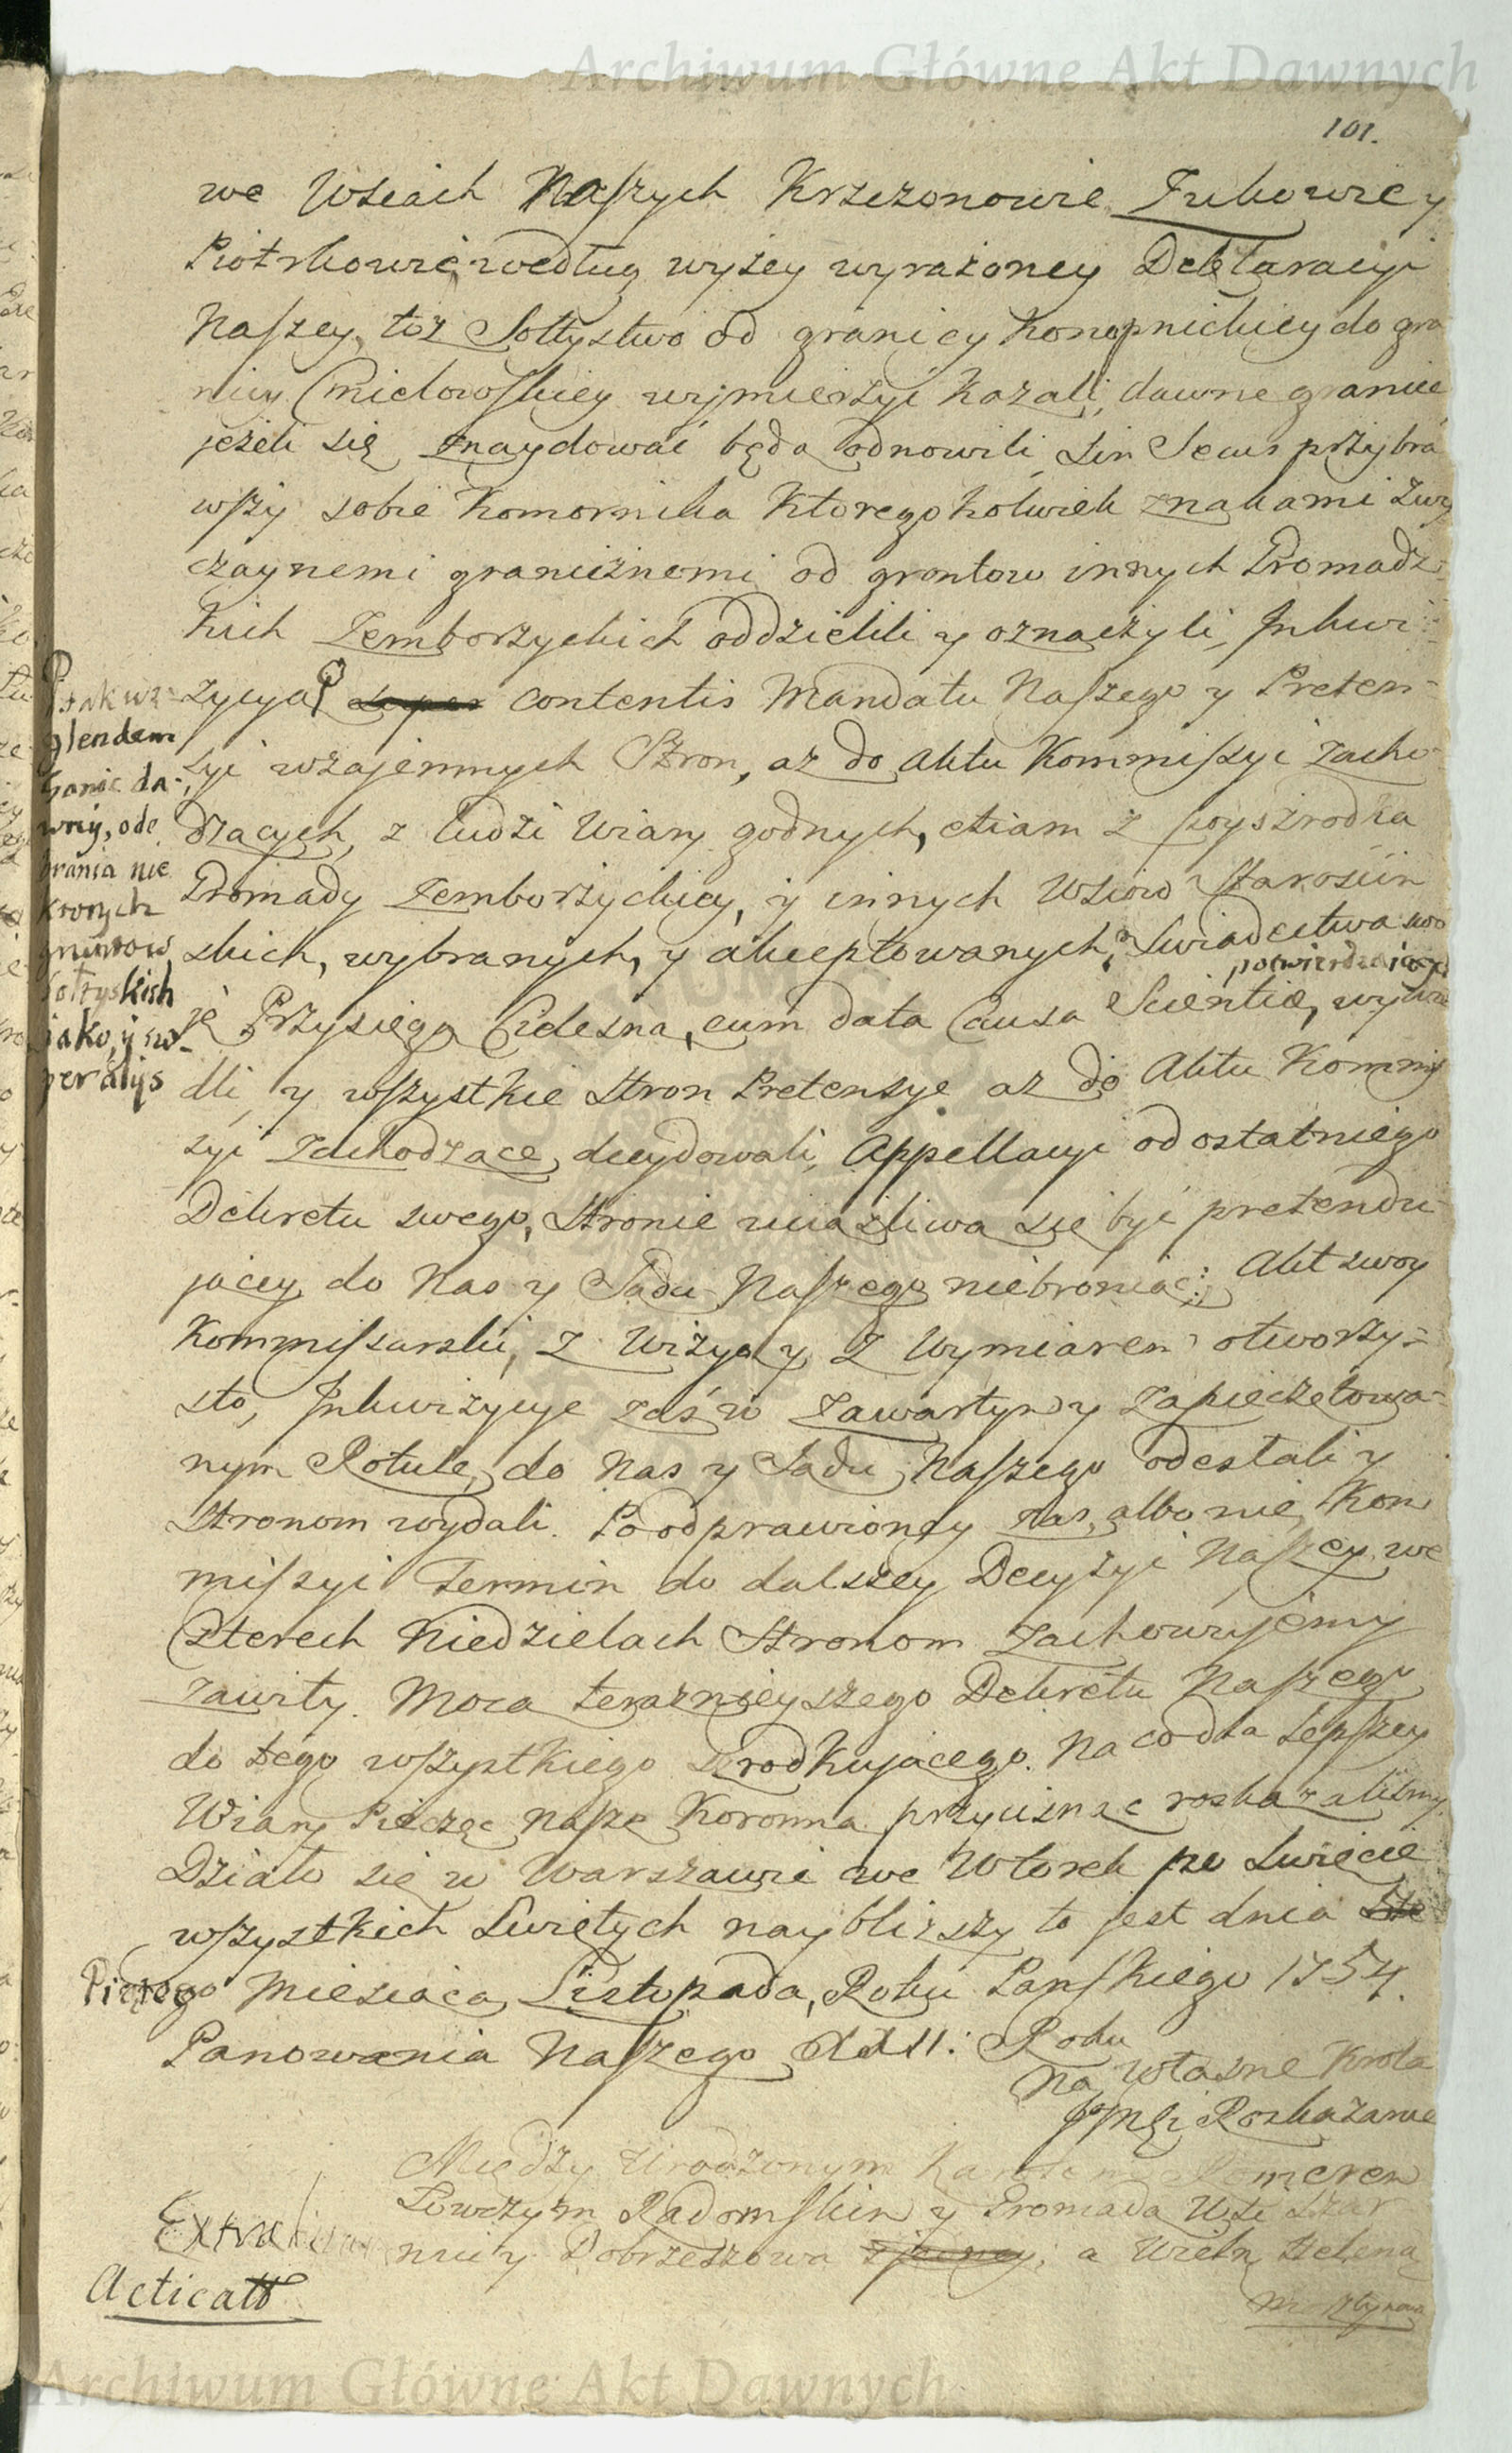 Archiwum Główne Akt Dawnych
101.
we Wsiach Naszych Krzczonowie Zukowie y
Piotrkowie według wyżey wyrażoney Deklaracyi
Naszey, toż Sołtystwo od granicy Konopnickiey do gra
nicy Cmielowskiey wymierzyć kazali, dawne granice
jeżeli się znaydować będą odnowili, Sin Secus przybra
wszy sobie Komornika ktoregokolwiek znakami zwy
czaynemi granicznemi od gruntow innych Gromadz
kich Zemborzyckich oddzielili y oznaczyli, Inkwi
zycyą contentis Mandatu Naszego y Preten-
syi wzajemnych Stron, aż do Aktu Kommissyi zacho-
dzących, z ludzi wiary godnych, etiam z pośrzodka
Gromady Zemborzyckiey, y innych Wsiow Starościn
skich, wybranych, y akceptowanych, Swiadectwa swo
potwierdzaiących
je Przysięgą Cielesną, cum data Causa Scientiae, wywie
dli, y wszystkie Stron Pretensye aż do Aktu Kommis
syi zachodzące, decydowali, Appellacyi od ostatniego
Dekretu swego, Stronie uciążliwą się być pretendu-
jącey, do Nas y Sądu Naszego niebroniąc; Akt swoy
Kommissarski, z Wizyą y z Wymiarem otworzy-
sto, Inkwizycye zaś w zawartym y zapieczętowa-
nym Rotule, do Nas y Sądu Naszego odesłali y
Stronom wydali. Po odprawioney zaś, albo nie, Kom
missyi Termin do dalszey Decyzyi Naszey we
Czterech Niedzielach Stronom zachowujemy
zawity. Mocą teraznieyszego Dekretu Naszego
do tego wszystkiego srzodkującego. Na co dla lepszey
Wiary Pieczęć Naszę Koronną przycisnąć roskazaliśmy.
Działo się w Warszawie we Wtorek po Swięcie
wszystkich Swiętych naybliższy to jest dnia
Piątego Miesiąca Listopada, Roku Panskiego 1754.
Panowania Naszego XXII: Roku
Na własne Krola
JgoMCi Roskazanie
Prak wz-
glendem
Granic da-
wny, ode
brania nie
ktorych
gruntow
Sołtyskich
jako, y sw-
per aliis
Między Urodzonym Romerem
Łowczym Radomskim y Gromadą Wsi Czar
nney y Dobrzeszowa a Wieln Heleną
Extrad
Acticatt
Archiwum Główne Akt Dawnych